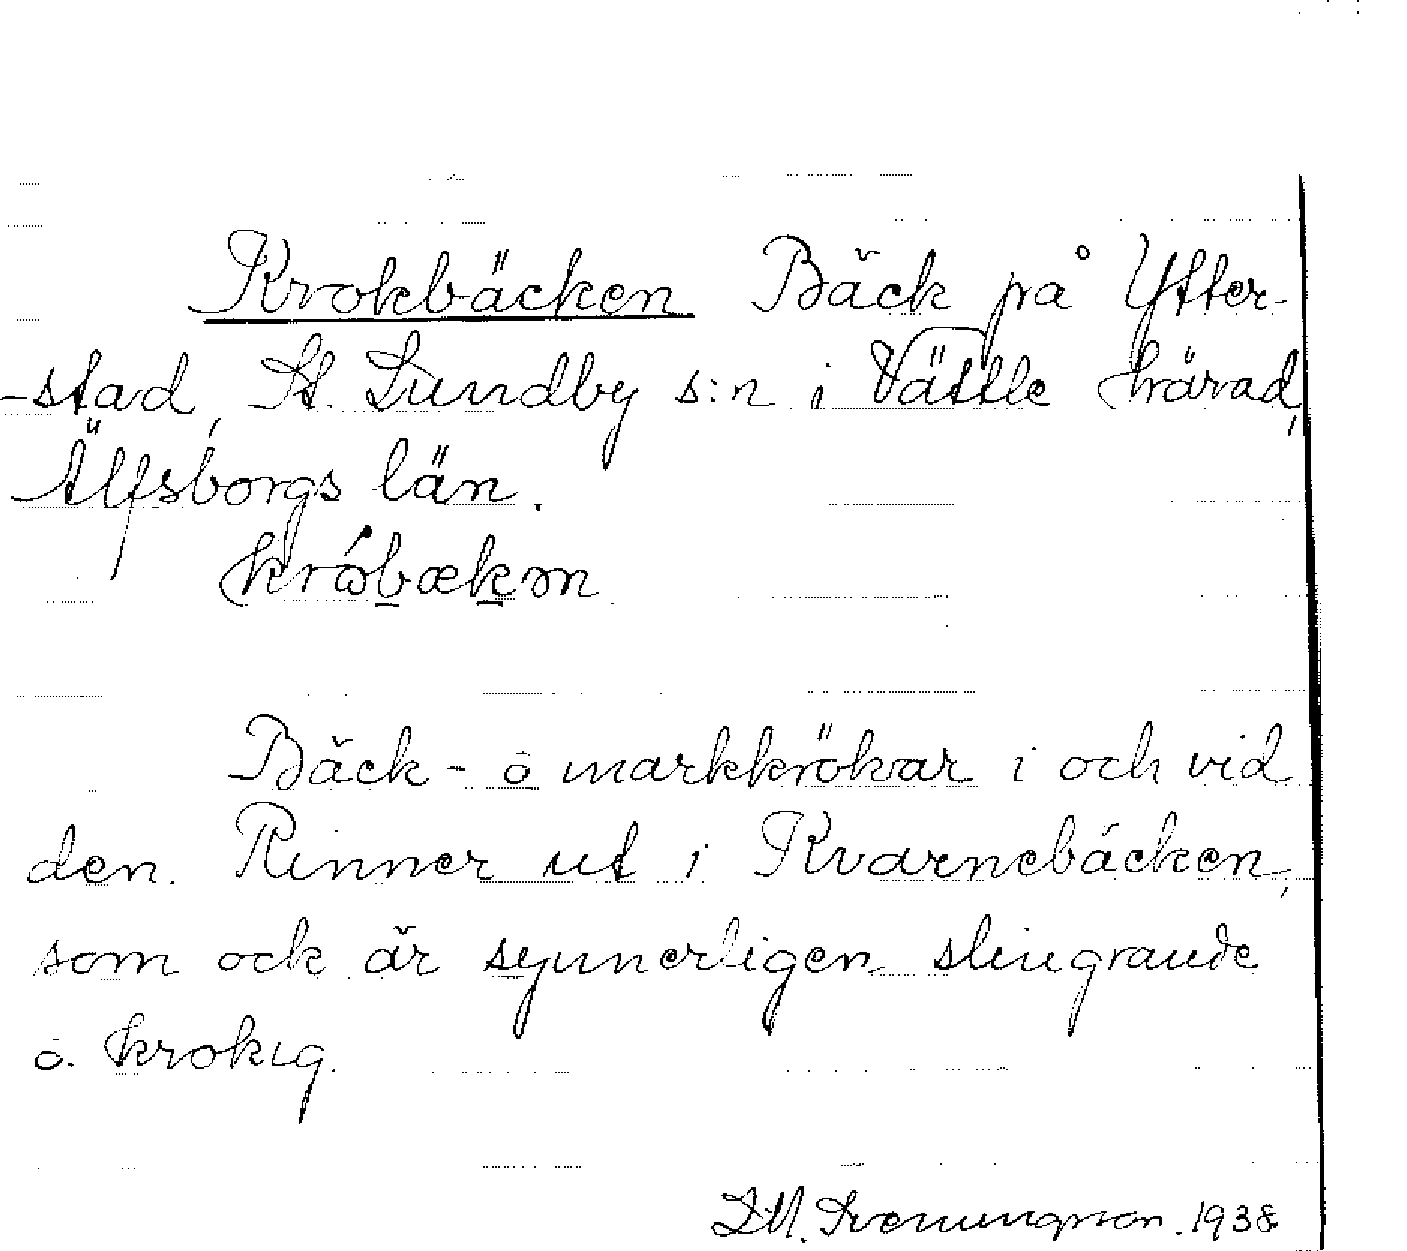 Krokbäcken Bäck på Ytter-
-stad, St. Lundby s:n i Vättle härad,
Älfsborgs län.
Bäck- o markkrökar i och vid
den. Rinner ut i Kvarnebäcken,
som ock är synnerligen slingrande
o. krokig.
1938